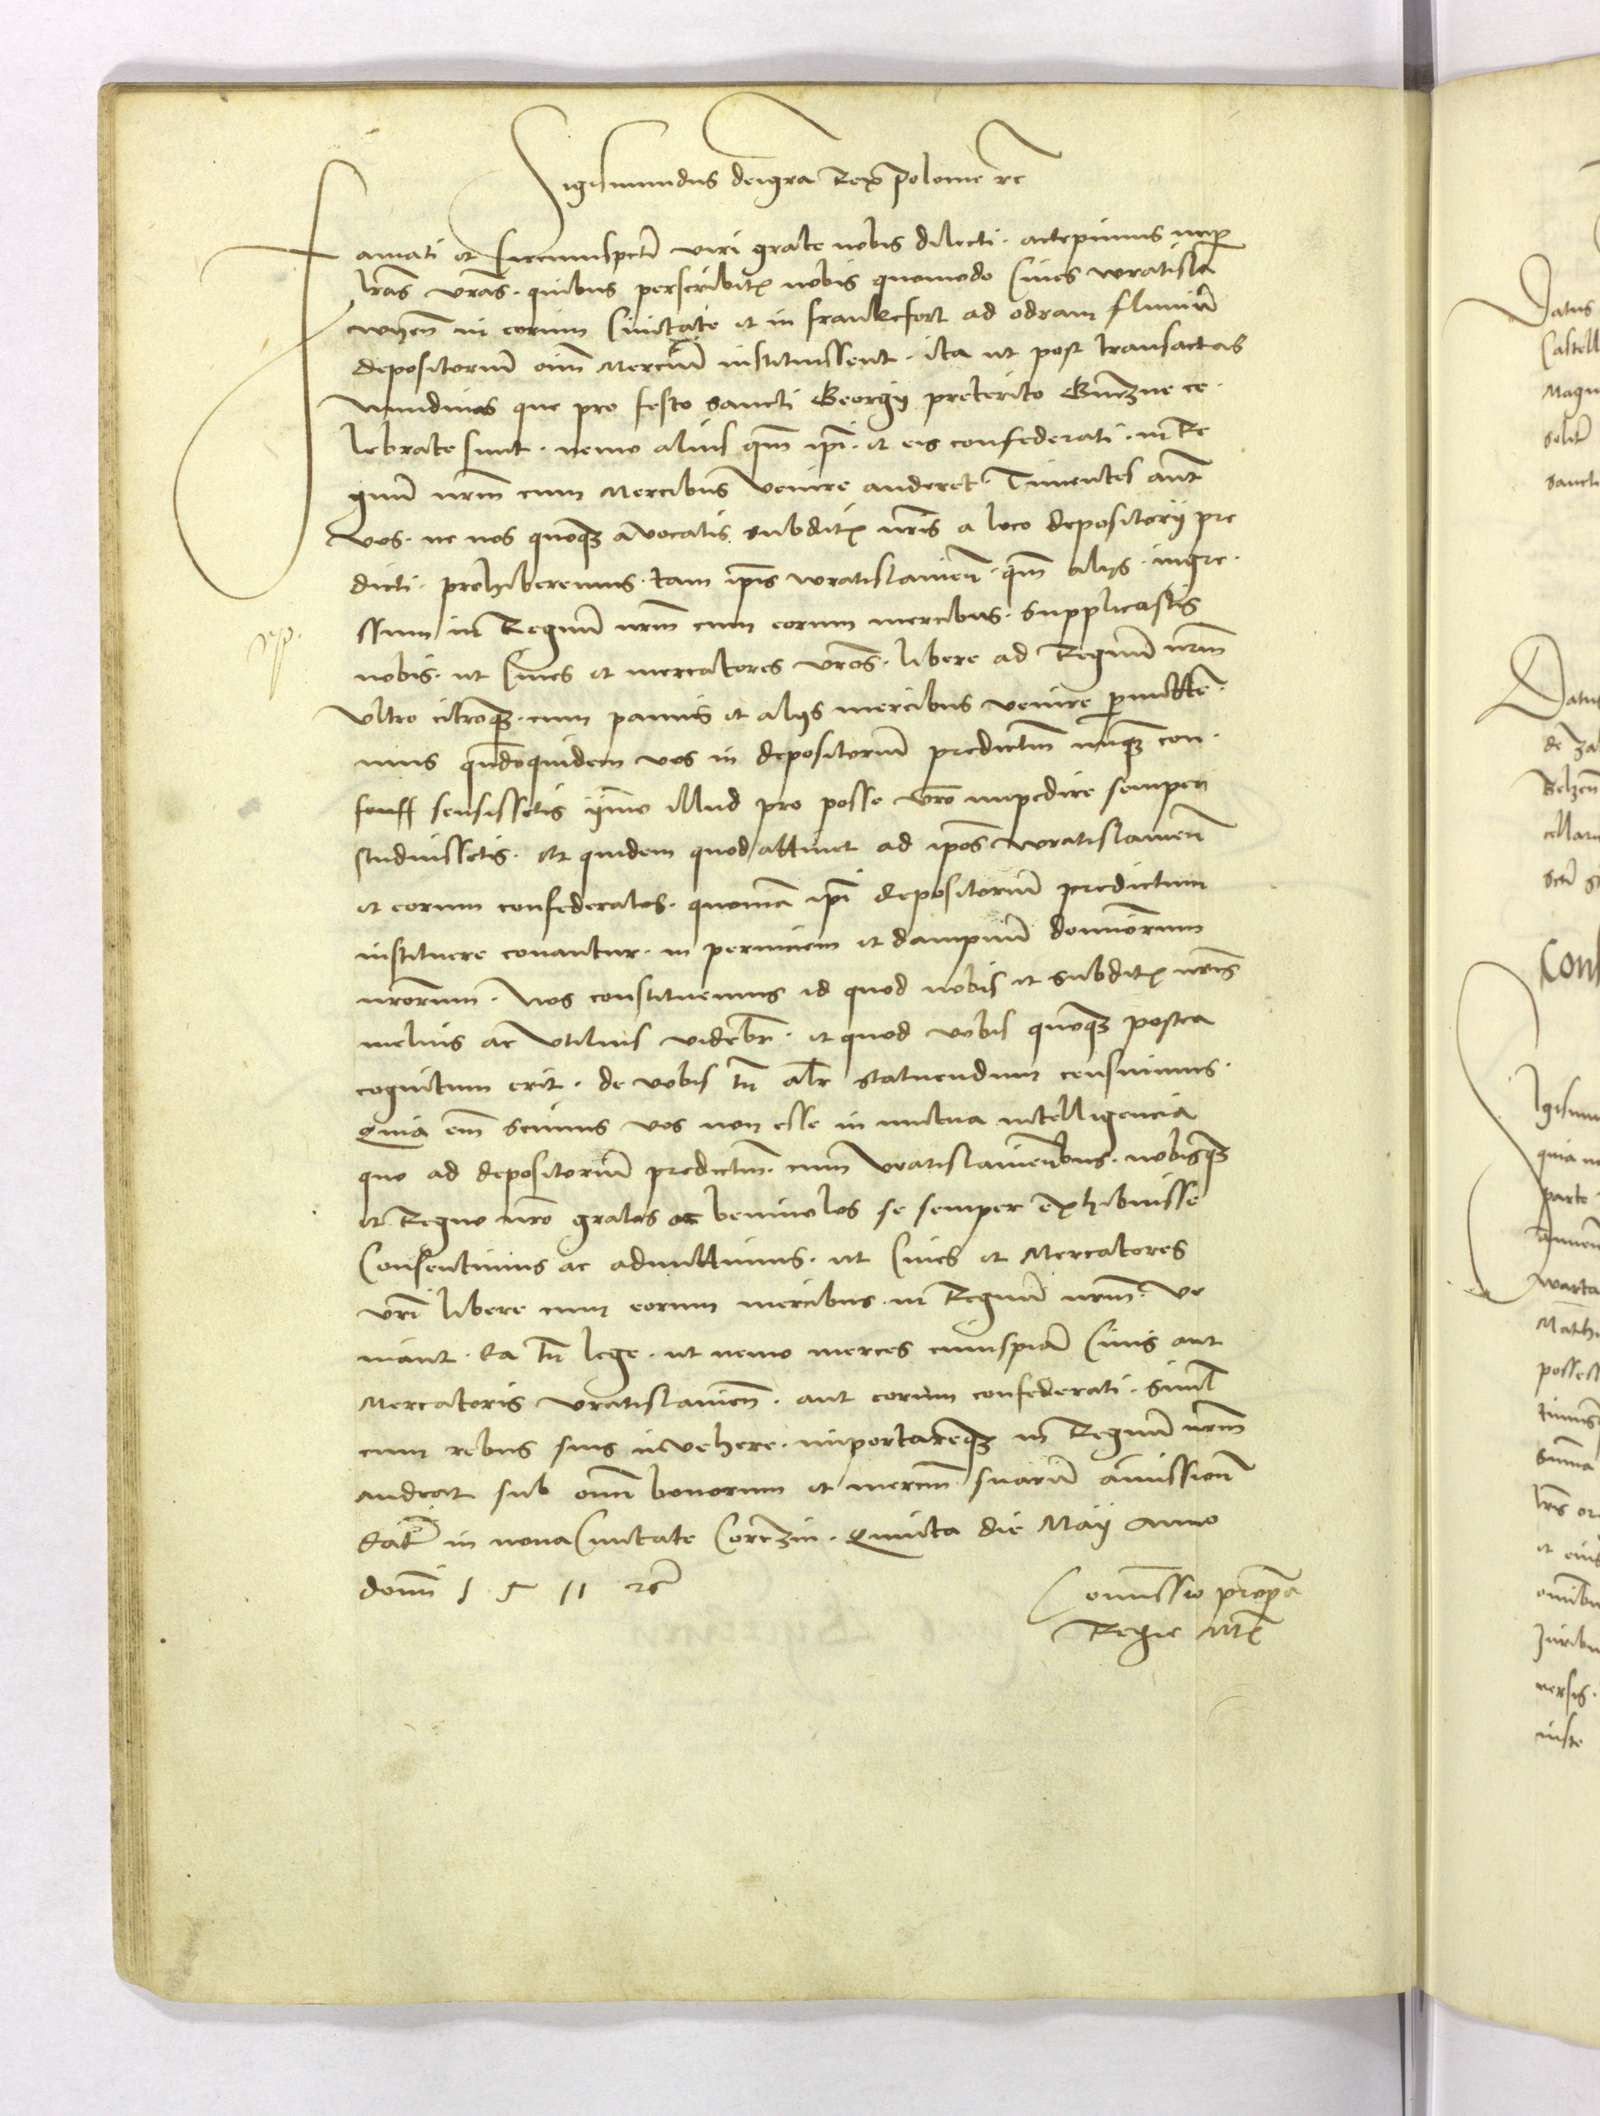 Sigismundus dei gra Rex Polonie rc
Famati et Circumspecti viri grate nobis dilecti. accepimus nup
lras vras. quibus perscribitr nobis quomodo Ciues wratisla
wyen in eorum Ciuitate et in frankefort ad odram fluuiu
depositoriu oim Merciu instituissent. ita ut post transactas
Nundinas que pro festo sancti Georgy preterito Gnezne ce.
lebrate sunt. nemo alius qm ipi. et eis confederati. in Re
gnu nrm cum Mercibus venire auderet. Timentes aut
vos. ne nos quoq avocatis subditr nris a loco depositorij pre
dicti. prohiberemus. tam ipis wratislauien. qm alijs. ingre.
ssum in Regnu nrm cum eorum mercibus. supplicastis
nobis. ut Ciues et mercatores vros. libere ad Regnu nrm
vltro citroq. cum pannis et alijs mercibus venire pmitte.
mus qndoquidem vos in depositoriu predictm nunq con.
sensissetis ymo illud pro posse vro impedire semper
studuissetis. Et quidem quod attinet ad ipos wratislauien
et eorum confederatos. quonia ipi depositoriu predictum
instituere conantur. in perniciem et dampnu dominiorum
nrorum. Nos constituemus id quod nobis et subditr nris
melius ac vtilius videbr. et quod vobis quoq postea
cognitum erit. de vobis tn alr statuendum censuimus.
Quia em scimus vos non esse in mutua intelligencia
quo ad depositoriu predictm. cum vratislauienbus. nobisq
et Regno nro gratos ac beniuolos se semper exhibuisse
Consentimus ac admittimus. ut Ciues et Mercatores
vri libere cum eorum mercibus. in Regnu nrm. ve
niant. Ea tn lege. ut nemo merces cuiuspia Ciuis aut
Mercatoris vratislauien. aut eorum confederati. siml
cum rebus suis invehere. importareq in Regnu nrm
audeat sub omi bonorum et merciu suaru amissione
Dat in nova Ciuitate Corczin. Quinta die Maij Anno
domi 1 5 11 rc
Comissio propa
Regie Mtr